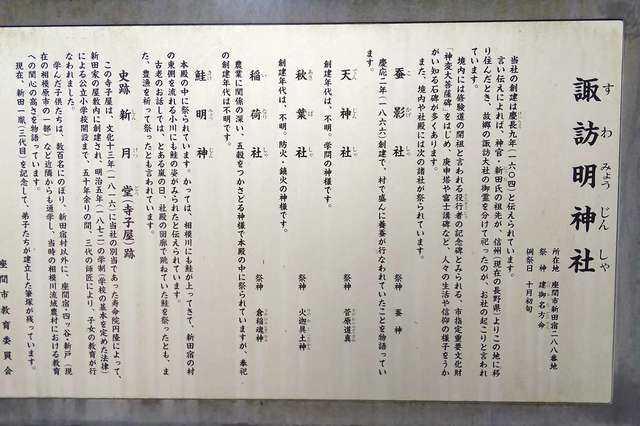 諏訪明神社
すわみょうじんしゃ
所在地 座間市新田宿二八八番地
祭神 建御名方命
例祭日 十月初旬
当社の創建は慶長九年(一六〇四)と伝えられています。
言い伝えによれば、神官・新田氏の祖先が、信州(現在の長野県)よりこの地に移
り住んだとき、故郷の諏訪大社の御霊を分けて祀ったのが、お社の起こりと言われ
ています。
境内には修験道の開祖と言われる役行者の記念碑とみられる、市指定重要文化財
「神変大菩薩碑」をはじめ、庚申塔や富士講碑など、人々の生活や信仰の様子をうか
がい知る石碑が多くあります。
また、境内や社殿には次の諸社が祭られています。
蚕影社
こかげしゃ
祭神 蚕神
慶応二年(一八六六)創建で、村で盛んに養蚕が行なわれていたことを物語ってい
ます。
天神社
てんじんしゃ
祭神 菅原道真
創建年代は、不明。学問の神様です。
秋葉社
あきばしゃ
祭神 火迦具土神
創建年代は、不明。防火・鎮火の神様です。
稲荷社
いなりしゃ
祭神 倉稲魂神
農業に関係の深い、五穀をつかさどる神様で本殿の中に祭られていますが、奉祀
の創建年代は不明です。
鮭明神
さけみょうじん
本殿の中に祭られています。かっては、相模川にも鮭が上ってきて、新田宿の村
の東側を流れる小川にも鮭の姿がみられたと伝えられています。
古老のお話しでは、とある嵐の日、社殿の回廊で跳ねていた鮭を祭ったとも、ま
た、豊漁を祈って祭ったとも言われています。
史跡 新月堂(寺子屋)跡
この寺子屋は、文化十三年(一八一六)に当社の別当であった寿命院円隆によって、
新田家の屋敷内に創建され、明治五年(一八七二)の学制(学校の基本を定めた法律)
による公立小学校開設まで、五十年余りの間、三代の師匠により、子女の教育が行
なわれました。
学んだ子供たちは、数百名にのぼり、新田宿村以外に、座間宿・四ッ谷・新戸(現
在の相模原市の一部)など近隣からも通学し、当時の相模川流域農村における教育
への関心の高さを物語っています。
現在、新田一胤(三代目)を記念して、弟子たちが建立した筆塚が残っています。
座間市教育委員会